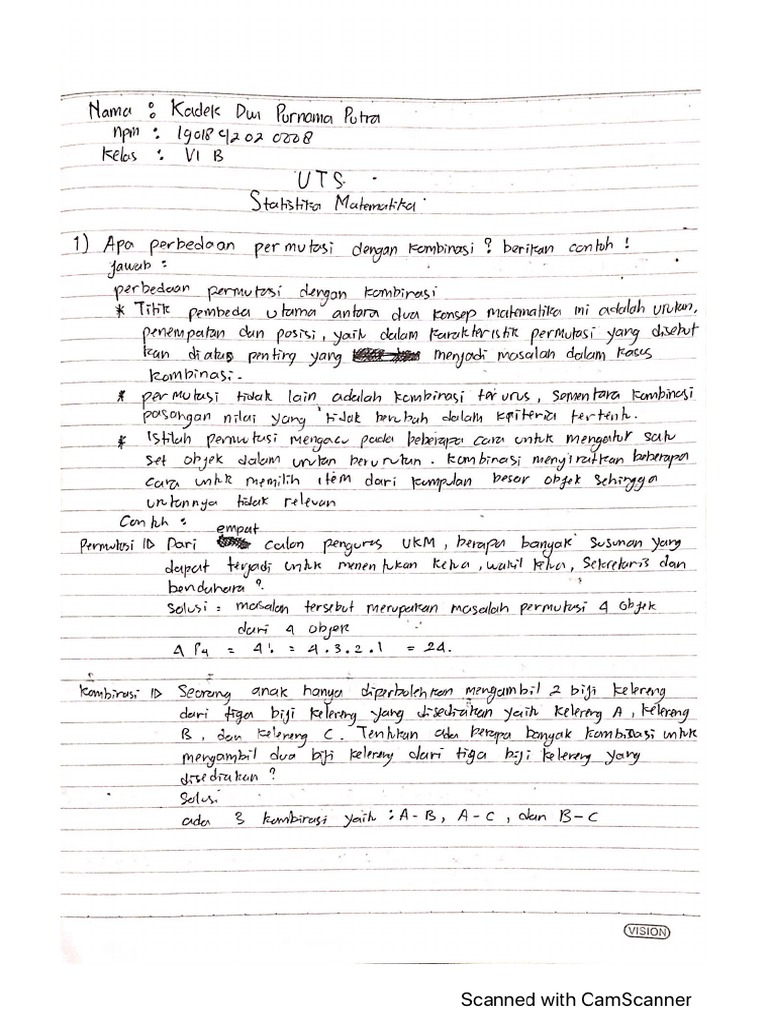 Nama : Kadek Dwi Purnama Putra
npm : 1901842020008
Kelas : VI B
UTS
Statistika Matematika
1) Apa perbedaan permutasi dengan kombinasi ? berikan contoh !
Jawab :
perbedaan permutasi dengan kombinasi
* Titik pembeda utama antara dua konsep matematika ini adalah urutan,
penempatan dan posisi, yaitu dalam karakteristik permutasi yang disebut
kan diatas penting yang menjadi masalah dalam kasus
kombinasi.
* permutasi tidak lain adalah kombinasi terurus, sementara kombinasi
pasangan nilai yang tidak berubah dalam kriteria tertentu.
* Istilah permutasi mengacu pada beberapa cara untuk mengatur satu
set objek dalam urutan berurutan. kombinasi menyiratkan beberapa
cara untuk memilih item dari kumpulan besar objek sehingga
urutannya tidak relevan
Contoh :
empat
Permutasi 1) Dari calon pengurus UKM, berapa banyak susunan yang
dapat terjadi untuk menentukan ketua, wakil ketua, sekretaris dan
bendahara ?
Solusi = masalah tersebut merupakan masalah permutasi 4 objek
dari 4 objek
4 P4 = 4! = 4.3.2.1 = 24.
Kombinasi 1) Seorang anak hanya diperbolehkan mengambil 2 biji kelereng
dari tiga biji kelereng yang disediakan yaitu kelereng A, kelereng
B, dan kelereng C. Tentukan ada berapa banyak kombinasi untuk
mengambil dua biji kelereng dari tiga biji kelereng yang
disediakan ?
Solusi
ada 3 kombinasi yaitu : A-B, A-C, dan B-C
VISION
Scanned with CamScanner